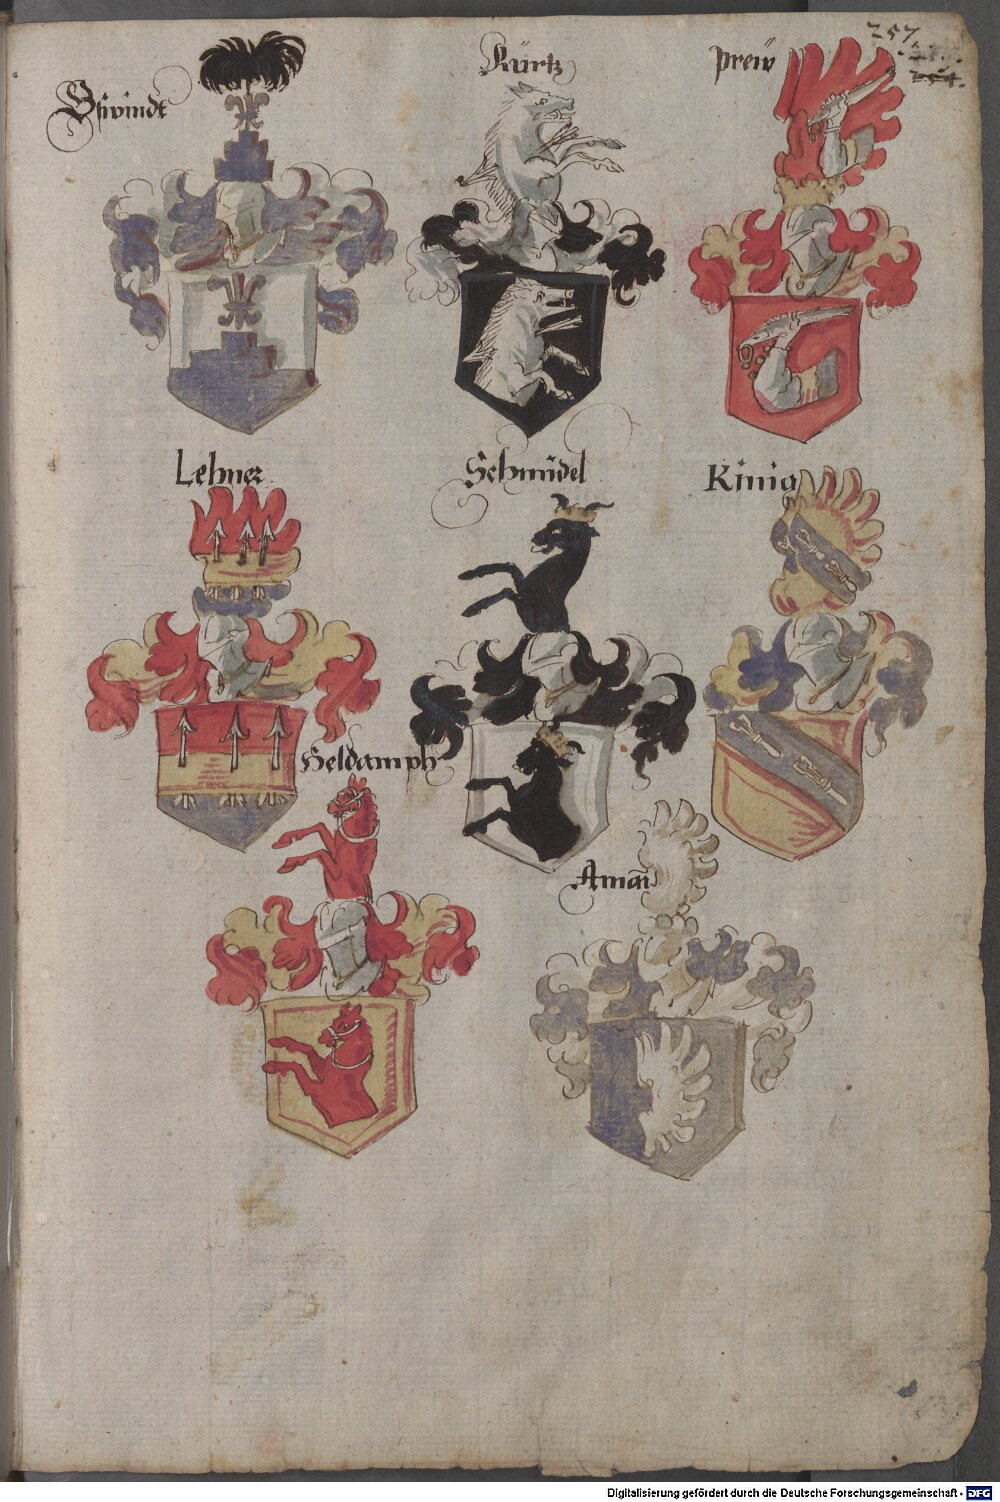 257.
Gswindt
Kürtz
preiv
Lehner
Schmidel
König
Heldamph
Aman
Digitalisierung gefördert durch die Deutsche Forschungsgemeinschaft - DFG